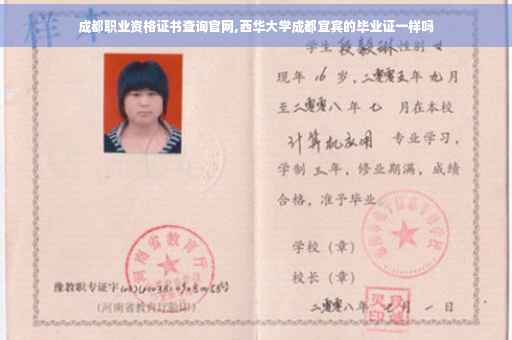 成都职业资格证书查询官网,西华大学成都宜宾的毕业证一样吗
样本
学生 段毅琳 性别 女
现年 16 岁，二零零五年 九月
至二零零八年 七 月在本校
计算机应用 专业学习，
学制 三 年，修业期满，成绩
合格，准予毕业
学校（章）
校长（章）
河南省教育厅
豫教职专证字
（河南省教育厅验印）
二零零八年 七 月 一 日